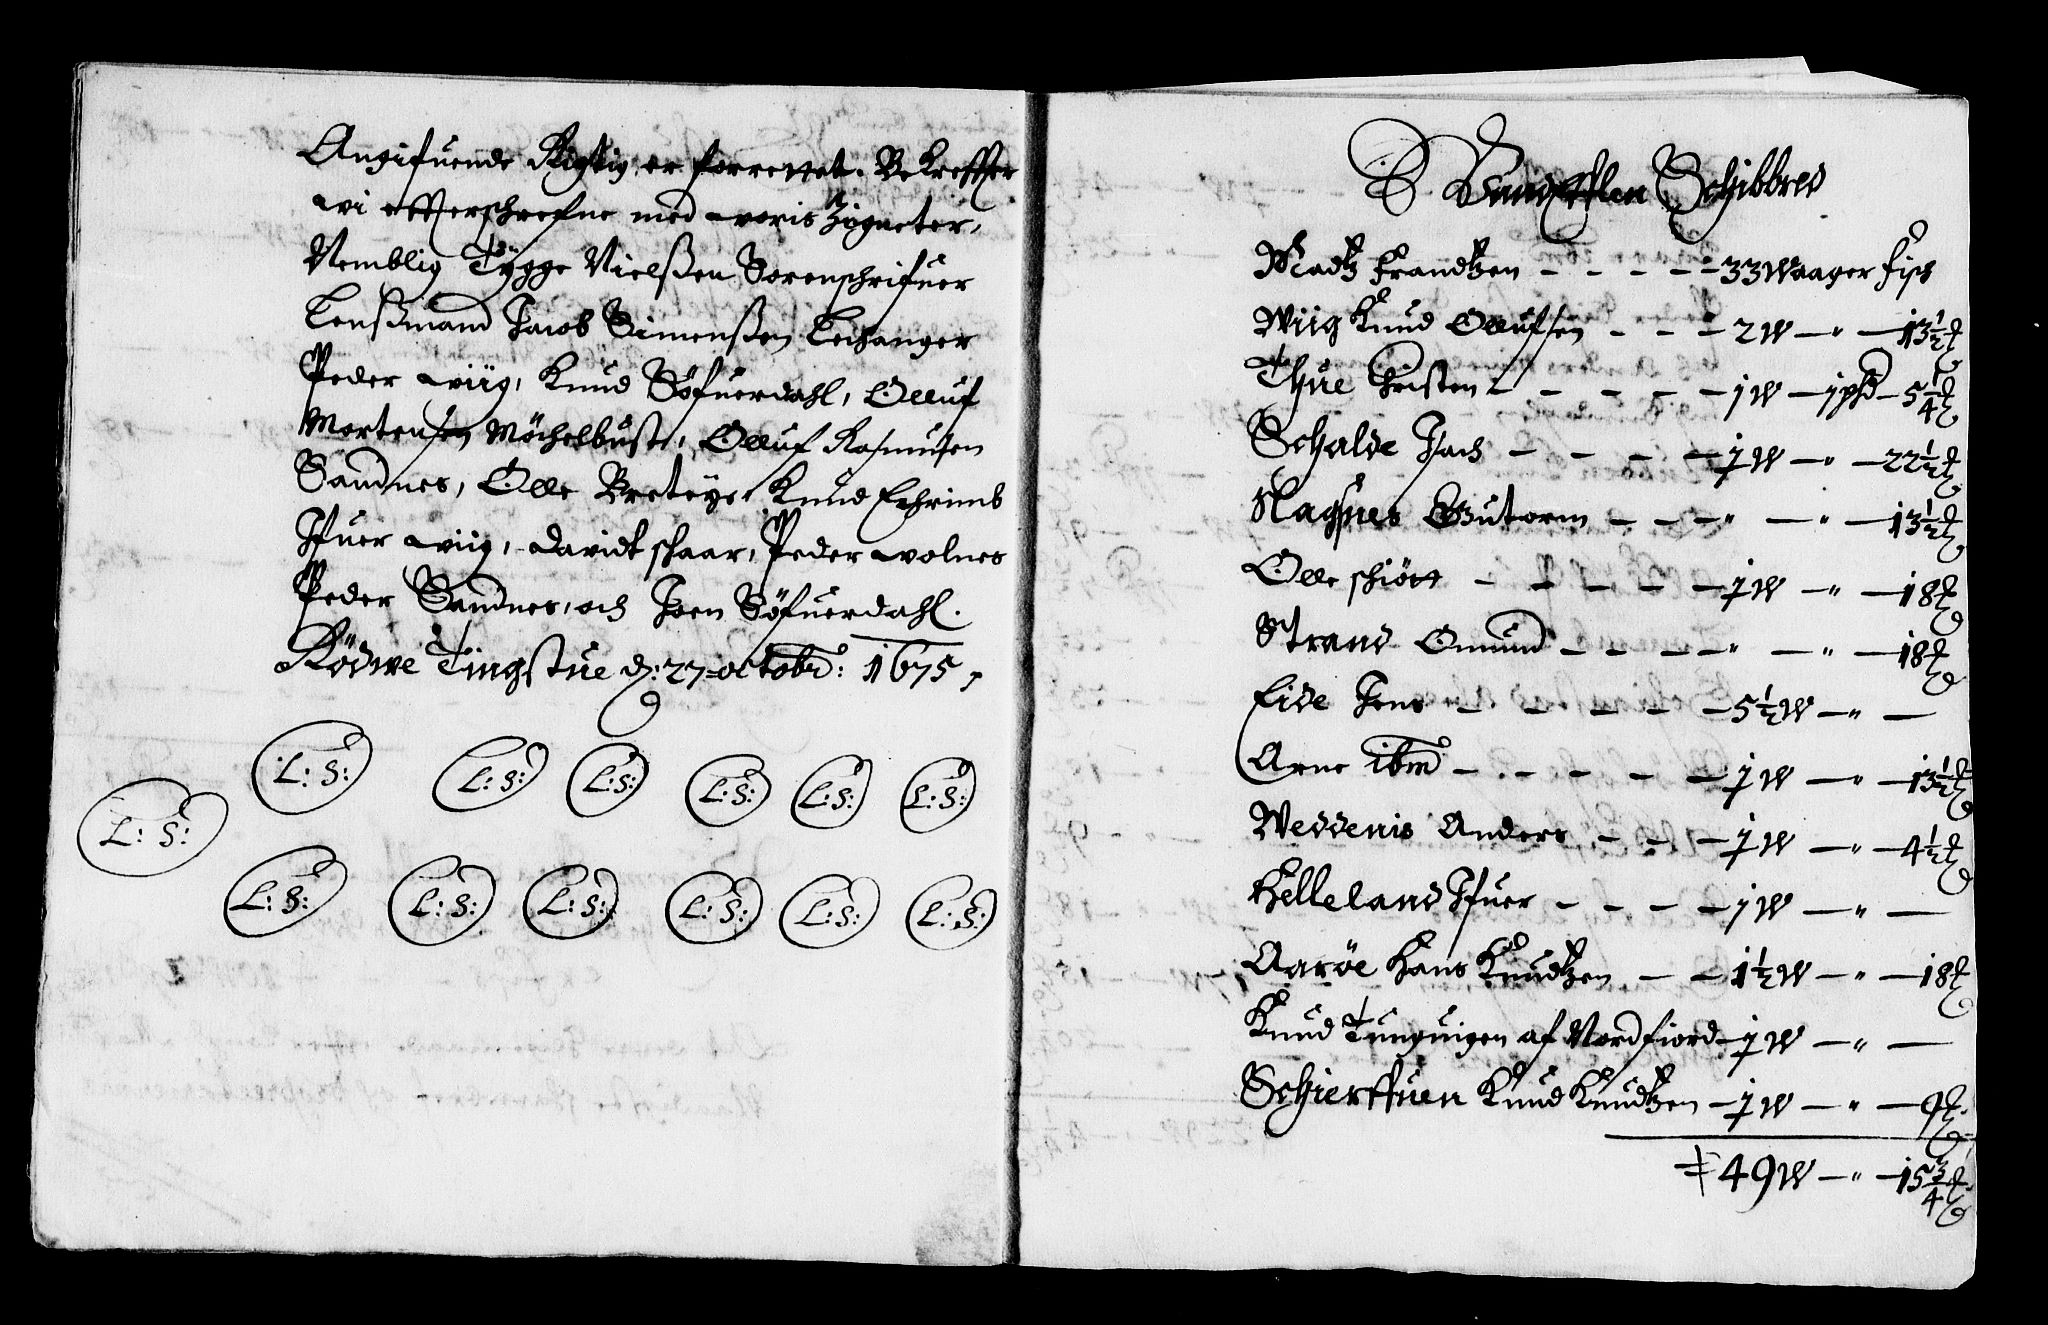 Angifuende Rigtig er forrettet. Bekreffter
wi effterschrefne med woris Zigneter,
Nemblig Tÿgge Nielßen Sorenschrifuer
Lenßmand Jacob Simenßen Leehanger
Peder wiig, Knud Söfuerdahl, Olluf
Mortensen Möchelbust, Olluf Rasmusen
Sandnes, Olle Breteÿe, Knud Echrimb
Ifuer wiig, davidt schaar, Peder wolnes
Peder Sandnes, och Joen Söfuerdahl.
Rödwe Tingstue d: 27 octobr: 1675,
L: S: L: S: L: S: L: S: L: S: L: S:
L: S:
L: S: L: S: L: S: L: S: L: S: L: S:
Schibbred
Madtz Frandtzen - - - - 33 Waager Fisch
Wiig Knud Ollufsen - - - 2 W - " - 13½ ℔
Thue Christen - - - - - 1 W - 1 pd - 5¼ ℔
Schalde Isach - - - - 1 W - " - 22½ ℔
Magnes Guttorm - - - " - " - 13½ ℔
Olle schiött - - - - - 1 W - " - 18 ℔
Strand Omund - - - - " - " - 18 ℔
Eide Jens - - - - - 5½ W - " -
Arne ibm - - - - - 1 W - " - 13½ ℔
Weddenis Anders - - - 1 W - " - 4½ ℔
Helleland Ifuer - - - - 1 W - " -
Aaröe Hans Knudtzen - - 1½ W - " - 18 ℔
Knud Tunguigen af Nordfiord - 1 W - " -
Schierffuen Knud Knudtzen - 1 W - " - 9 ℔
49 W - " - 15¾ ℔